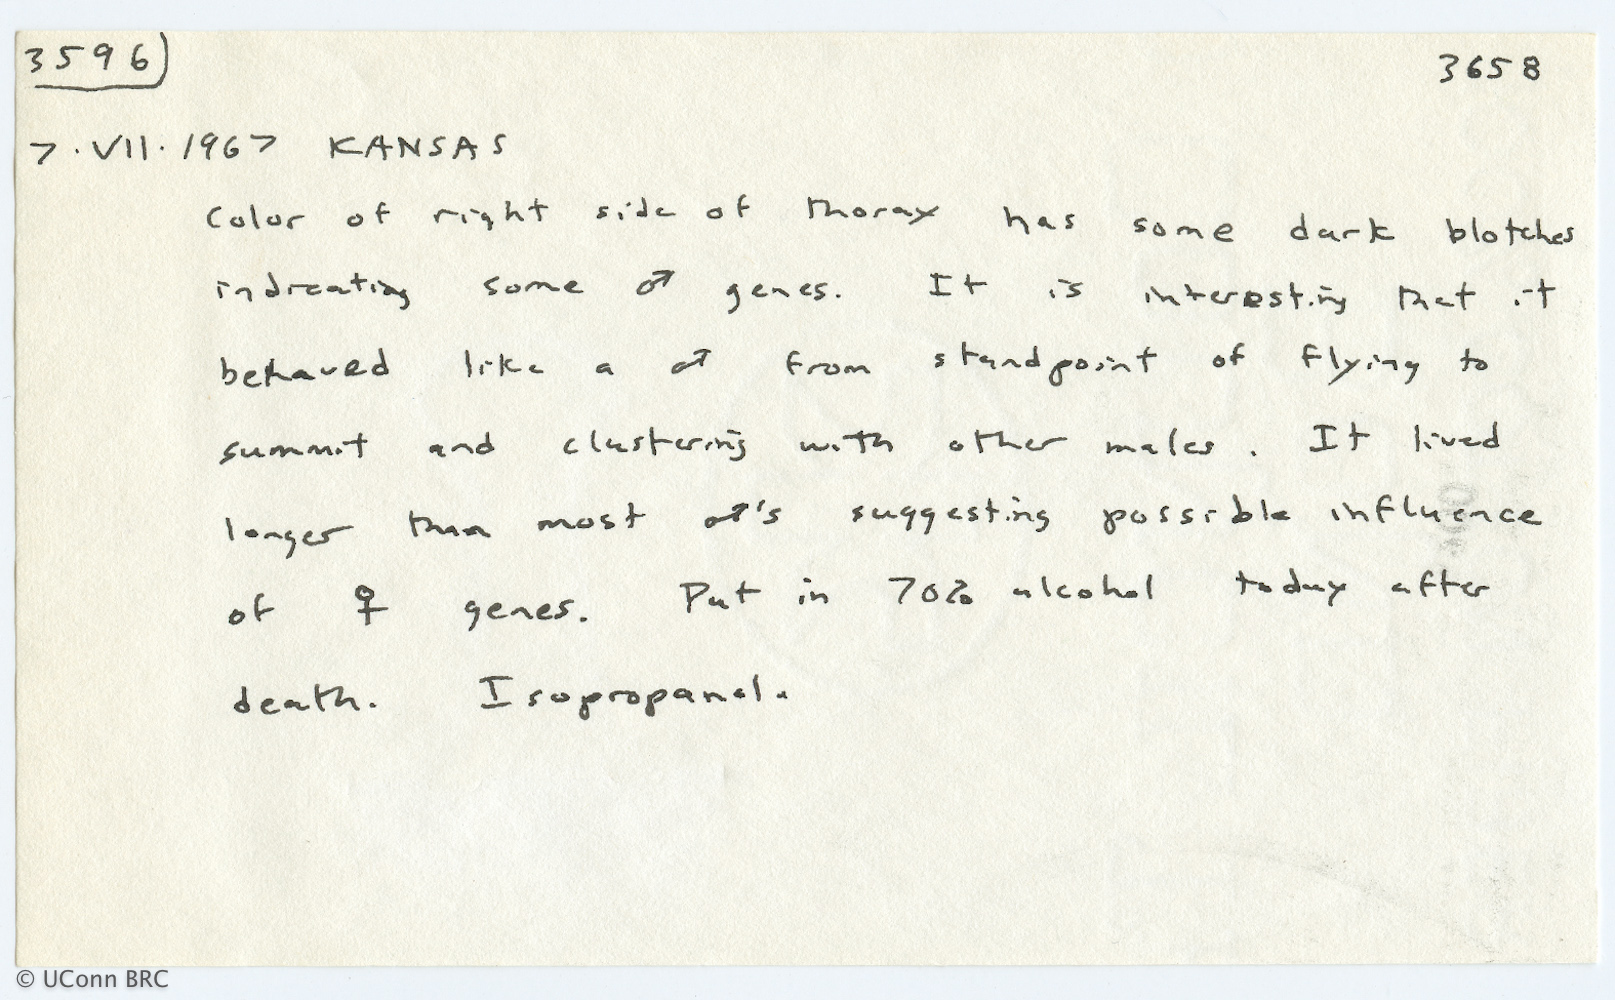 3596) 3658
7.VII.1967 KANSAS
Color of right side of thorax has some dark blotches
indicating some ♂ genes. It is interesting that it
behaved like a ♂ from standpoint of flying to
summit and clustering with other males. It lived
longer than most ♂'s suggesting possible influence
of ♀ genes. Put in 70% alcohol today after
death. Isopropanol.
© UConn BRC